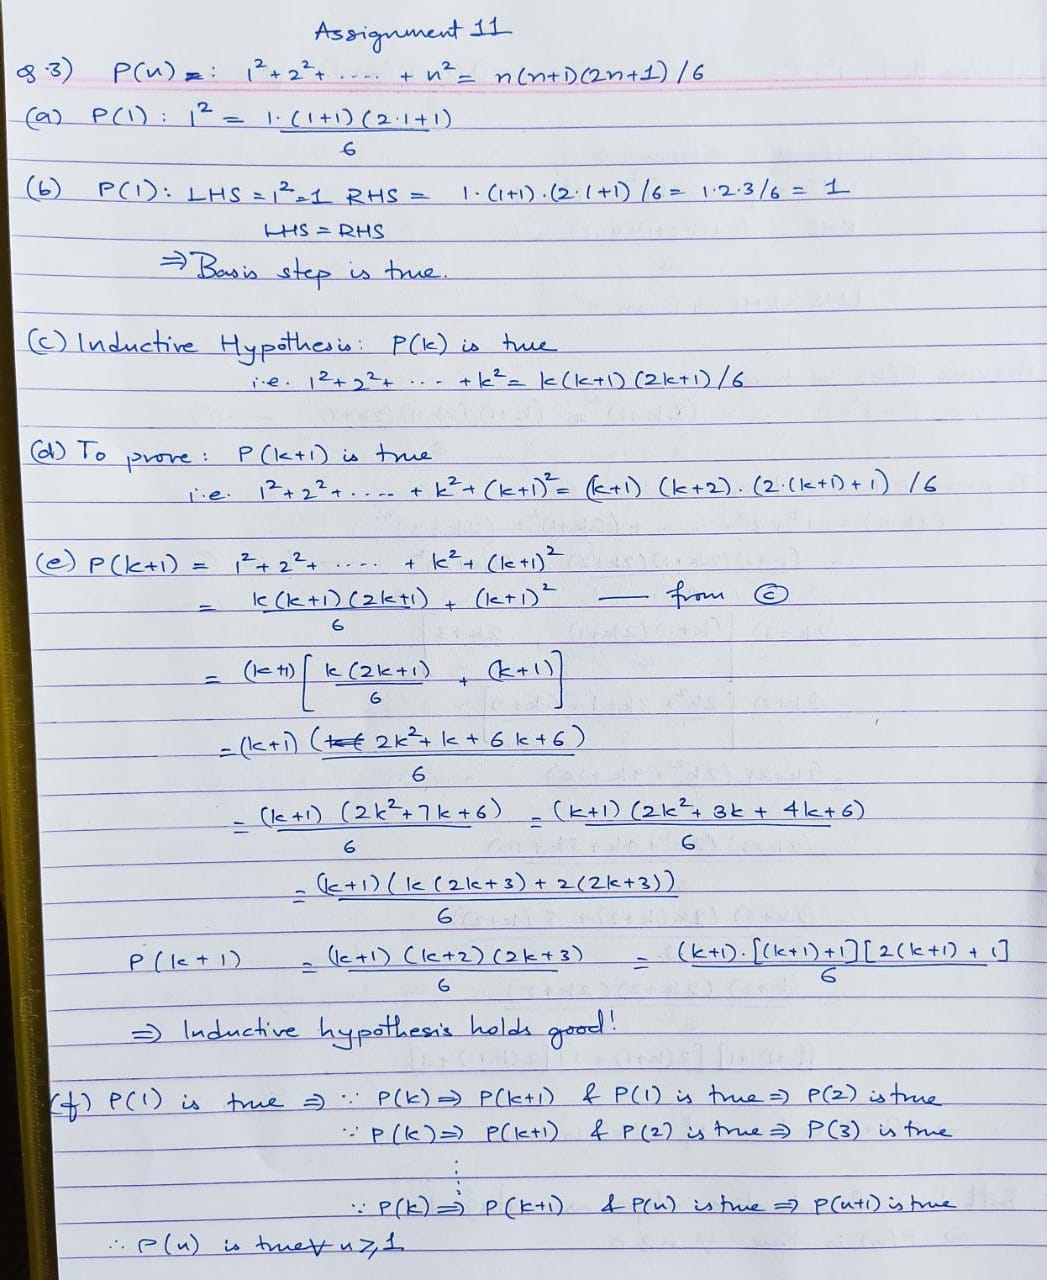 Assignment 11
Q.3) P(n) =: 1²+2²+ ..... + n² = n(n+1)(2n+1)/6
(a) P(1) : 1² = 1.(1+1)(2.1+1)
6
(b) P(1): LHS = 1²=1 RHS = 1.(1+1).(2.1+1)/6 = 1.2.3/6 = 1
LHS = RHS
⇒ Basis step is true.
(c) Inductive Hypothesis: P(k) is true
i.e. 1²+2²+ ... +k² = k(k+1)(2k+1)/6
(d) To prove: P(k+1) is true
i.e. 1²+2²+..... + k²+(k+1)² = (k+1) (k+2).(2.(k+1)+1) /6
(e) P(k+1) = 1²+2²+ ..... + k²+ (k+1)²
= k(k+1)(2k+1) + (k+1)² — from ⓒ
6
= (k+1) [ k(2k+1) + (k+1) ]
6
= (k+1) ( 2k²+k+6k+6)
6
= (k+1) (2k²+7k+6) = (k+1) (2k²+3k+4k+6)
6 6
= (k+1)(k(2k+3)+2(2k+3))
6
P(k+1) = (k+1)(k+2)(2k+3) = (k+1).[(k+1)+1][2(k+1)+1]
6 6
⇒ Inductive hypothesis holds good!
(f) P(1) is true ⇒ ∵ P(k)⇒ P(k+1) & P(1) is true ⇒ P(2) is true
∵ P(k)⇒ P(k+1) & P(2) is true ⇒ P(3) is true
⋮
∵ P(k)⇒ P(k+1) & P(n) is true ⇒ P(n+1) is true
∴ P(n) is true ∀ n≥1